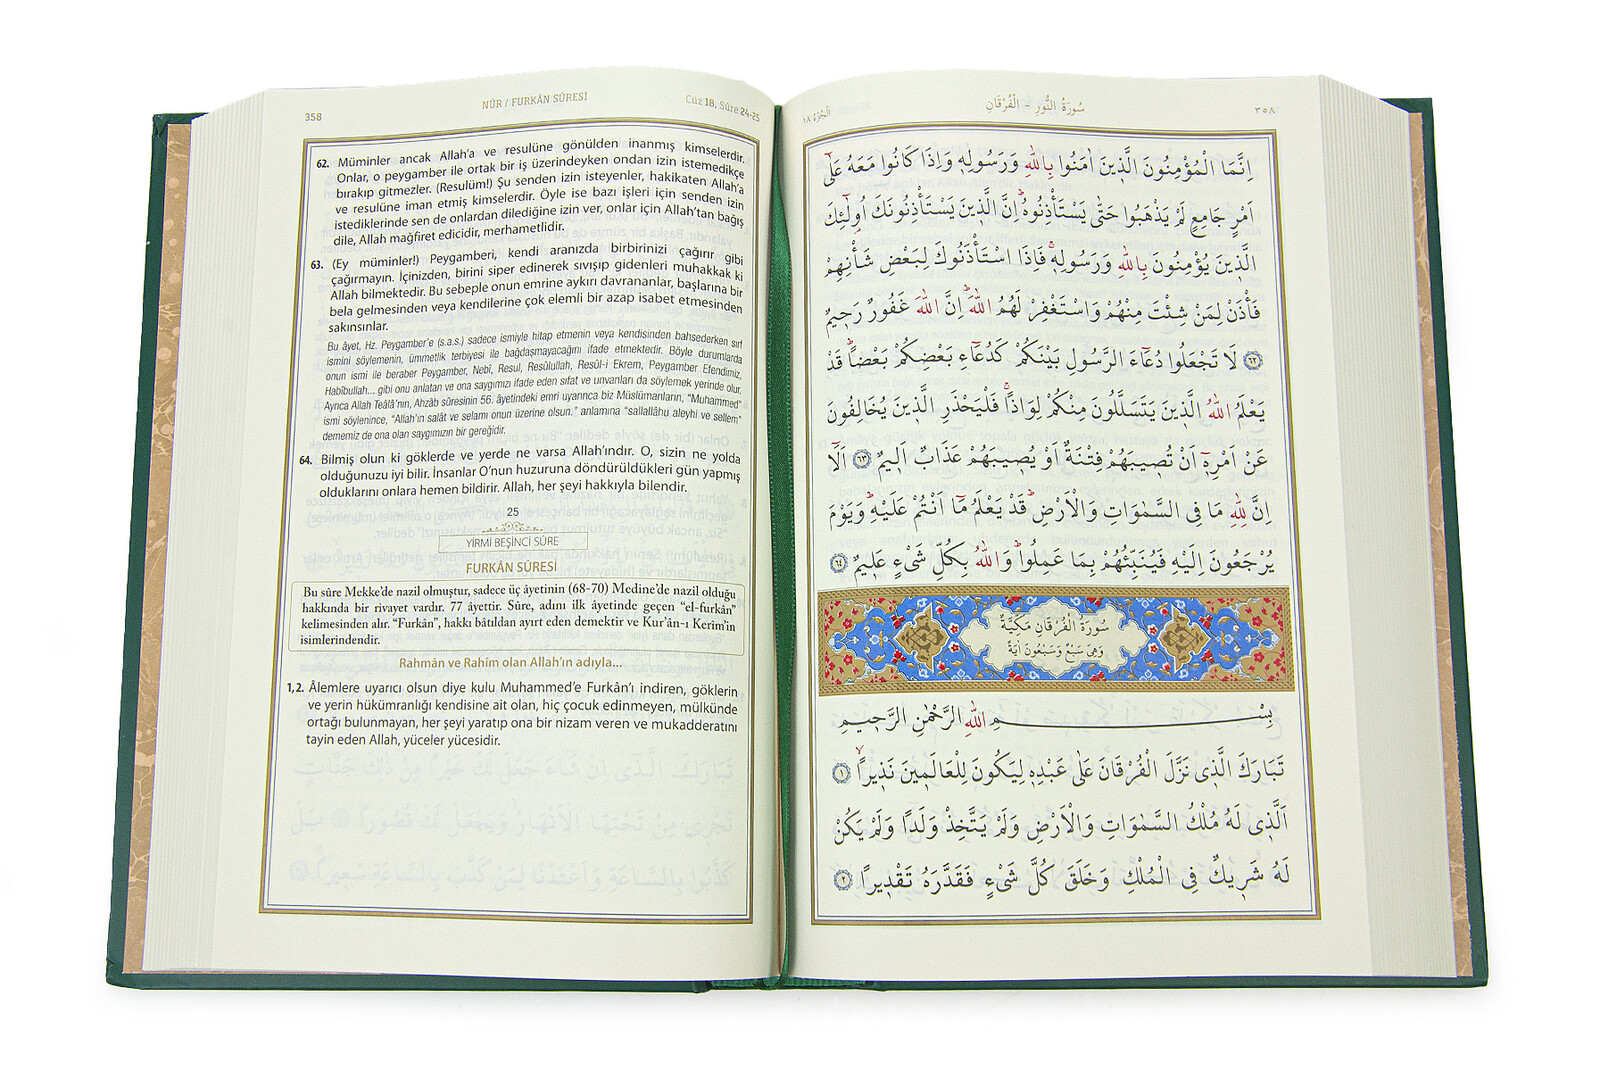 NÛR / FURKÂN SÛRESİ
Cüz 18, Sûre 24-25
358
62. Müminler ancak Allah’a ve resulüne gönülden inanmış kimselerdir.
Onlar, o peygamber ile ortak bir iş üzerindeyken ondan izin istemedikçe
bırakıp gitmezler. (Resulüm!) Şu senden izin isteyenler, hakikaten Allah’a
ve resulüne iman etmiş kimselerdir. Öyle ise bazı işleri için senden izin
istediklerinde sen de onlardan dilediğine izin ver, onlar için Allah’tan bağış
dile, Allah mağfiret edicidir, merhametlidir.
63. (Ey müminler!) Peygamberi, kendi aranızda birbirinizi çağırır gibi
çağırmayın. İçinizden, birini siper edinerek sıvışıp gidenleri muhakkak ki
Allah bilmektedir. Bu sebeple onun emrine aykırı davrananlar, başlarına bir
bela gelmesinden veya kendilerine çok elemli bir azap isabet etmesinden
sakınsınlar.
Bu âyet, Hz. Peygamber’e (s.a.s.) sadece ismiyle hitap etmenin veya kendisinden bahsederken sırf
ismini söylemenin, ümmetlik terbiyesi ile bağdaşmayacağını ifade etmektedir. Böyle durumlarda
onun ismi ile beraber Peygamber, Nebî, Resul, Resûlullah, Resûl-i Ekrem, Peygamber Efendimiz,
Habîbullah... gibi onu anlatan ve ona saygımızı ifade eden sıfat ve unvanları da söylemek yerinde olur.
Ayrıca Allah Teâlâ’nın, Ahzâb sûresinin 56. âyetindeki emri uyarınca biz Müslümanların, “Muhammed”
ismi söylenince, “Allah’ın salât ve selamı onun üzerine olsun.” anlamına “sallallâhu aleyhi ve sellem”
dememiz de ona olan saygımızın bir gereğidir.
64. Bilmiş olun ki göklerde ve yerde ne varsa Allah’ındır. O, sizin ne yolda
olduğunuzu iyi bilir. İnsanlar O’nun huzuruna döndürüldükleri gün yapmış
olduklarını onlara hemen bildirir. Allah, her şeyi hakkıyla bilendir.
25
YİRMİ BEŞİNCİ SÛRE
FURKÂN SÛRESİ
Bu sûre Mekke’de nazil olmuştur, sadece üç âyetinin (68-70) Medine’de nazil olduğu
hakkında bir rivayet vardır. 77 âyettir. Sûre, adını ilk âyetinde geçen “el-furkân”
kelimesinden alır. “Furkân”, hakkı bâtıldan ayırt eden demektir ve Kur’ân-ı Kerîm’in
isimlerindendir.
Rahmân ve Rahîm olan Allah’ın adıyla...
1,2. Âlemlere uyarıcı olsun diye kulu Muhammed’e Furkân’ı indiren, göklerin
ve yerin hükümranlığı kendisine ait olan, hiç çocuk edinmeyen, mülkünde
ortağı bulunmayan, her şeyi yaratıp ona bir nizam veren ve mukadderatını
tayin eden Allah, yüceler yücesidir.
٣٥٨
سُورَةُ النُّورِ - الْفُرْقَانِ
اَلْجُزْءُ ١٨
اِنَّمَا الْمُؤْمِنُونَ الَّذ۪ينَ اٰمَنُوا بِاللّٰهِ وَرَسُولِه۪ وَاِذَا كَانُوا مَعَهُ عَلٰٓى
اَمْرٍ جَامِعٍ لَمْ يَذْهَبُوا حَتّٰى يَسْتَأْذِنُوهُۜ اِنَّ الَّذ۪ينَ يَسْتَأْذِنُونَكَ اُو۬لٰٓئِكَ
الَّذ۪ينَ يُؤْمِنُونَ بِاللّٰهِ وَرَسُولِه۪ۚ فَاِذَا اسْتَأْذَنُوكَ لِبَعْضِ شَأْنِهِمْ
فَأْذَنْ لِمَنْ شِئْتَ مِنْهُمْ وَاسْتَغْفِرْ لَهُمُ اللّٰهَۜ اِنَّ اللّٰهَ غَفُورٌ رَح۪يمٌ
٦٢ لَا تَجْعَلُوا دُعَٓاءَ الرَّسُولِ بَيْنَكُمْ كَدُعَٓاءِ بَعْضِكُمْ بَعْضًاۜ قَدْ
يَعْلَمُ اللّٰهُ الَّذ۪ينَ يَتَسَلَّلُونَ مِنْكُمْ لِوَاذًاۚ فَلْيَحْذَرِ الَّذ۪ينَ يُخَالِفُونَ
عَنْ اَمْرِه۪ٓ اَنْ تُص۪يبَهُمْ فِتْنَةٌ اَوْ يُص۪يبَهُمْ عَذَابٌ اَل۪يمٌ ٦٣ اَلَٓا
اِنَّ لِلّٰهِ مَا فِي السَّمٰوَاتِ وَالْاَرْضِۜ قَدْ يَعْلَمُ مَٓا اَنْتُمْ عَلَيْهِۜ وَيَوْمَ
يُرْجَعُونَ اِلَيْهِ فَيُنَبِّئُهُمْ بِمَا عَمِلُواۜ وَاللّٰهُ بِكُلِّ شَيْءٍ عَل۪يمٌ ٦٤
سُورَةُ الْفُرْقَانِ مَكِّيَّةٌ
وَهِيَ سَبْعٌ وَسَبْعُونَ اٰيَةً
بِسْمِ اللّٰهِ الرَّحْمٰنِ الرَّح۪يمِ
تَبَارَكَ الَّذ۪ي نَزَّلَ الْفُرْقَانَ عَلٰى عَبْدِه۪ لِيَكُونَ لِلْعَالَم۪ينَ نَذ۪يرًاۙ ١
اَلَّذ۪ي لَهُ مُلْكُ السَّمٰوَاتِ وَالْاَرْضِ وَلَمْ يَتَّخِذْ وَلَدًا وَلَمْ يَكُنْ
لَهُ شَر۪يكٌ فِي الْمُلْكِ وَخَلَقَ كُلَّ شَيْءٍ فَقَدَّرَهُ تَقْد۪يرًا ٢